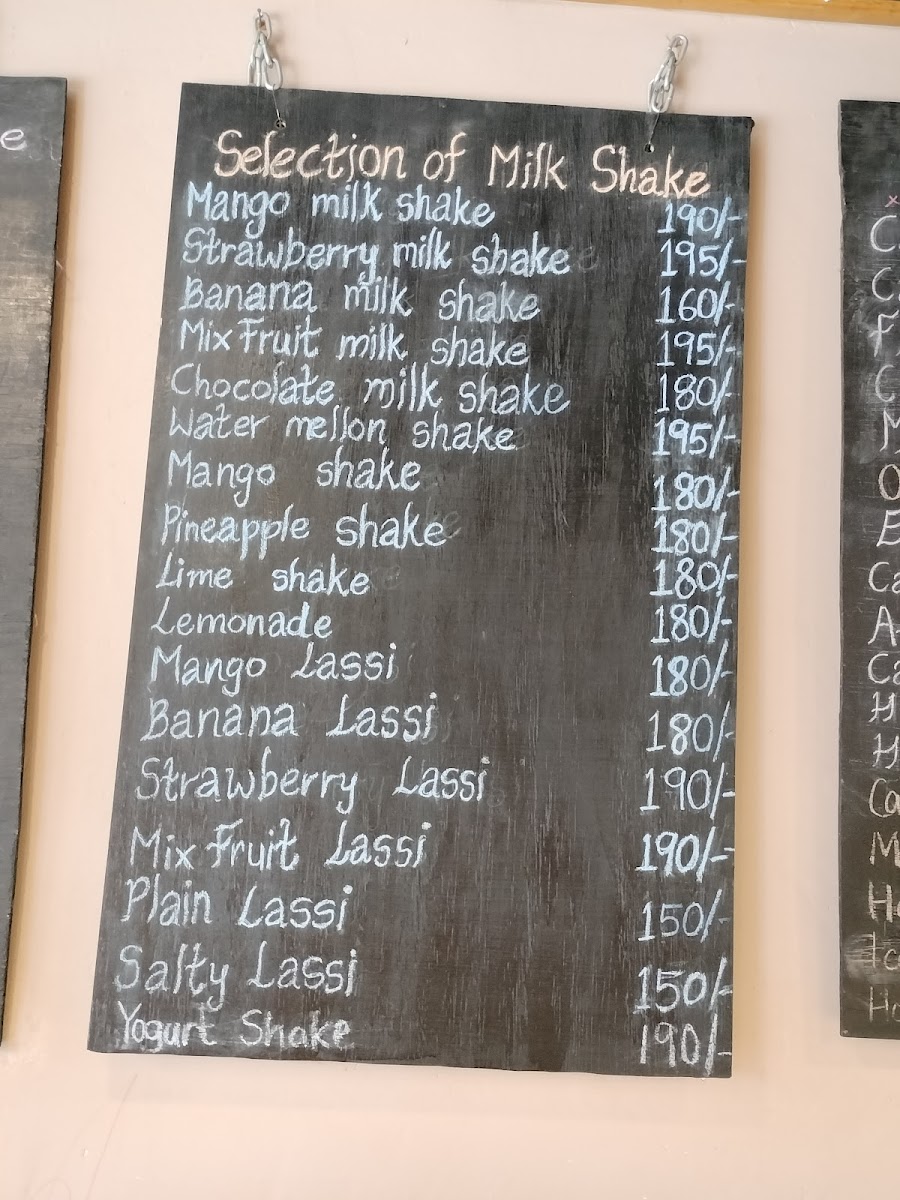 e
Selection of Milk Shake
Mango milk shake 190/-
Strawberry milk shake 195/-
Banana milk shake 160/-
Mix Fruit milk shake 195/-
Chocolate milk shake 180/-
Water mellon shake 195/-
Mango shake 180/-
Pineapple shake 180/-
Lime shake 180/-
Lemonade 180/-
Mango Lassi 180/-
Banana Lassi 180/-
Strawberry Lassi 190/-
Mix Fruit Lassi 190/-
Plain Lassi 150/-
Salty Lassi 150/-
Yogurt Shake 190/-